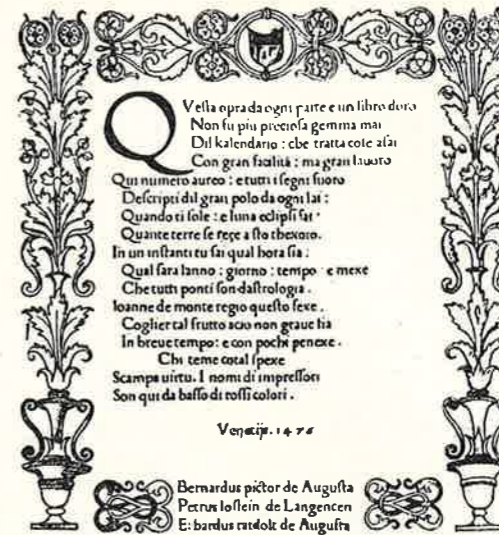 QVesta opra da ogni parte e un libro doro
Non fu piu preciosa gemma mai
Dil kalendario : che tratta cose asai
Con gran facilità : ma gran lauoro
Qui numero aureo : e tutti i segni fuoro
Descripti dil gran polo da ogni lai :
Quando ti sole : e luna eclipsi fai :
Quante terre se rege a sto thexoro.
In un instanti tu sai qual hora sia :
Qual sara lanno : giorno : tempo : e mexe
Che tutti ponti son dastrologia .
Ioanne de monte regio questo fexe .
Coglier tal frutto acio non graue sia
In breue tempo : e con pochi penexe .
Chi teme cotal spexe
Scampa uirtu . I nomi di impressori
Son qui da basso di rossi colori .
Venetijs . 1476
Bernardus pictor de Augusta
Petrus loslein de Langencen
Erhardus ratdolt de Augusta